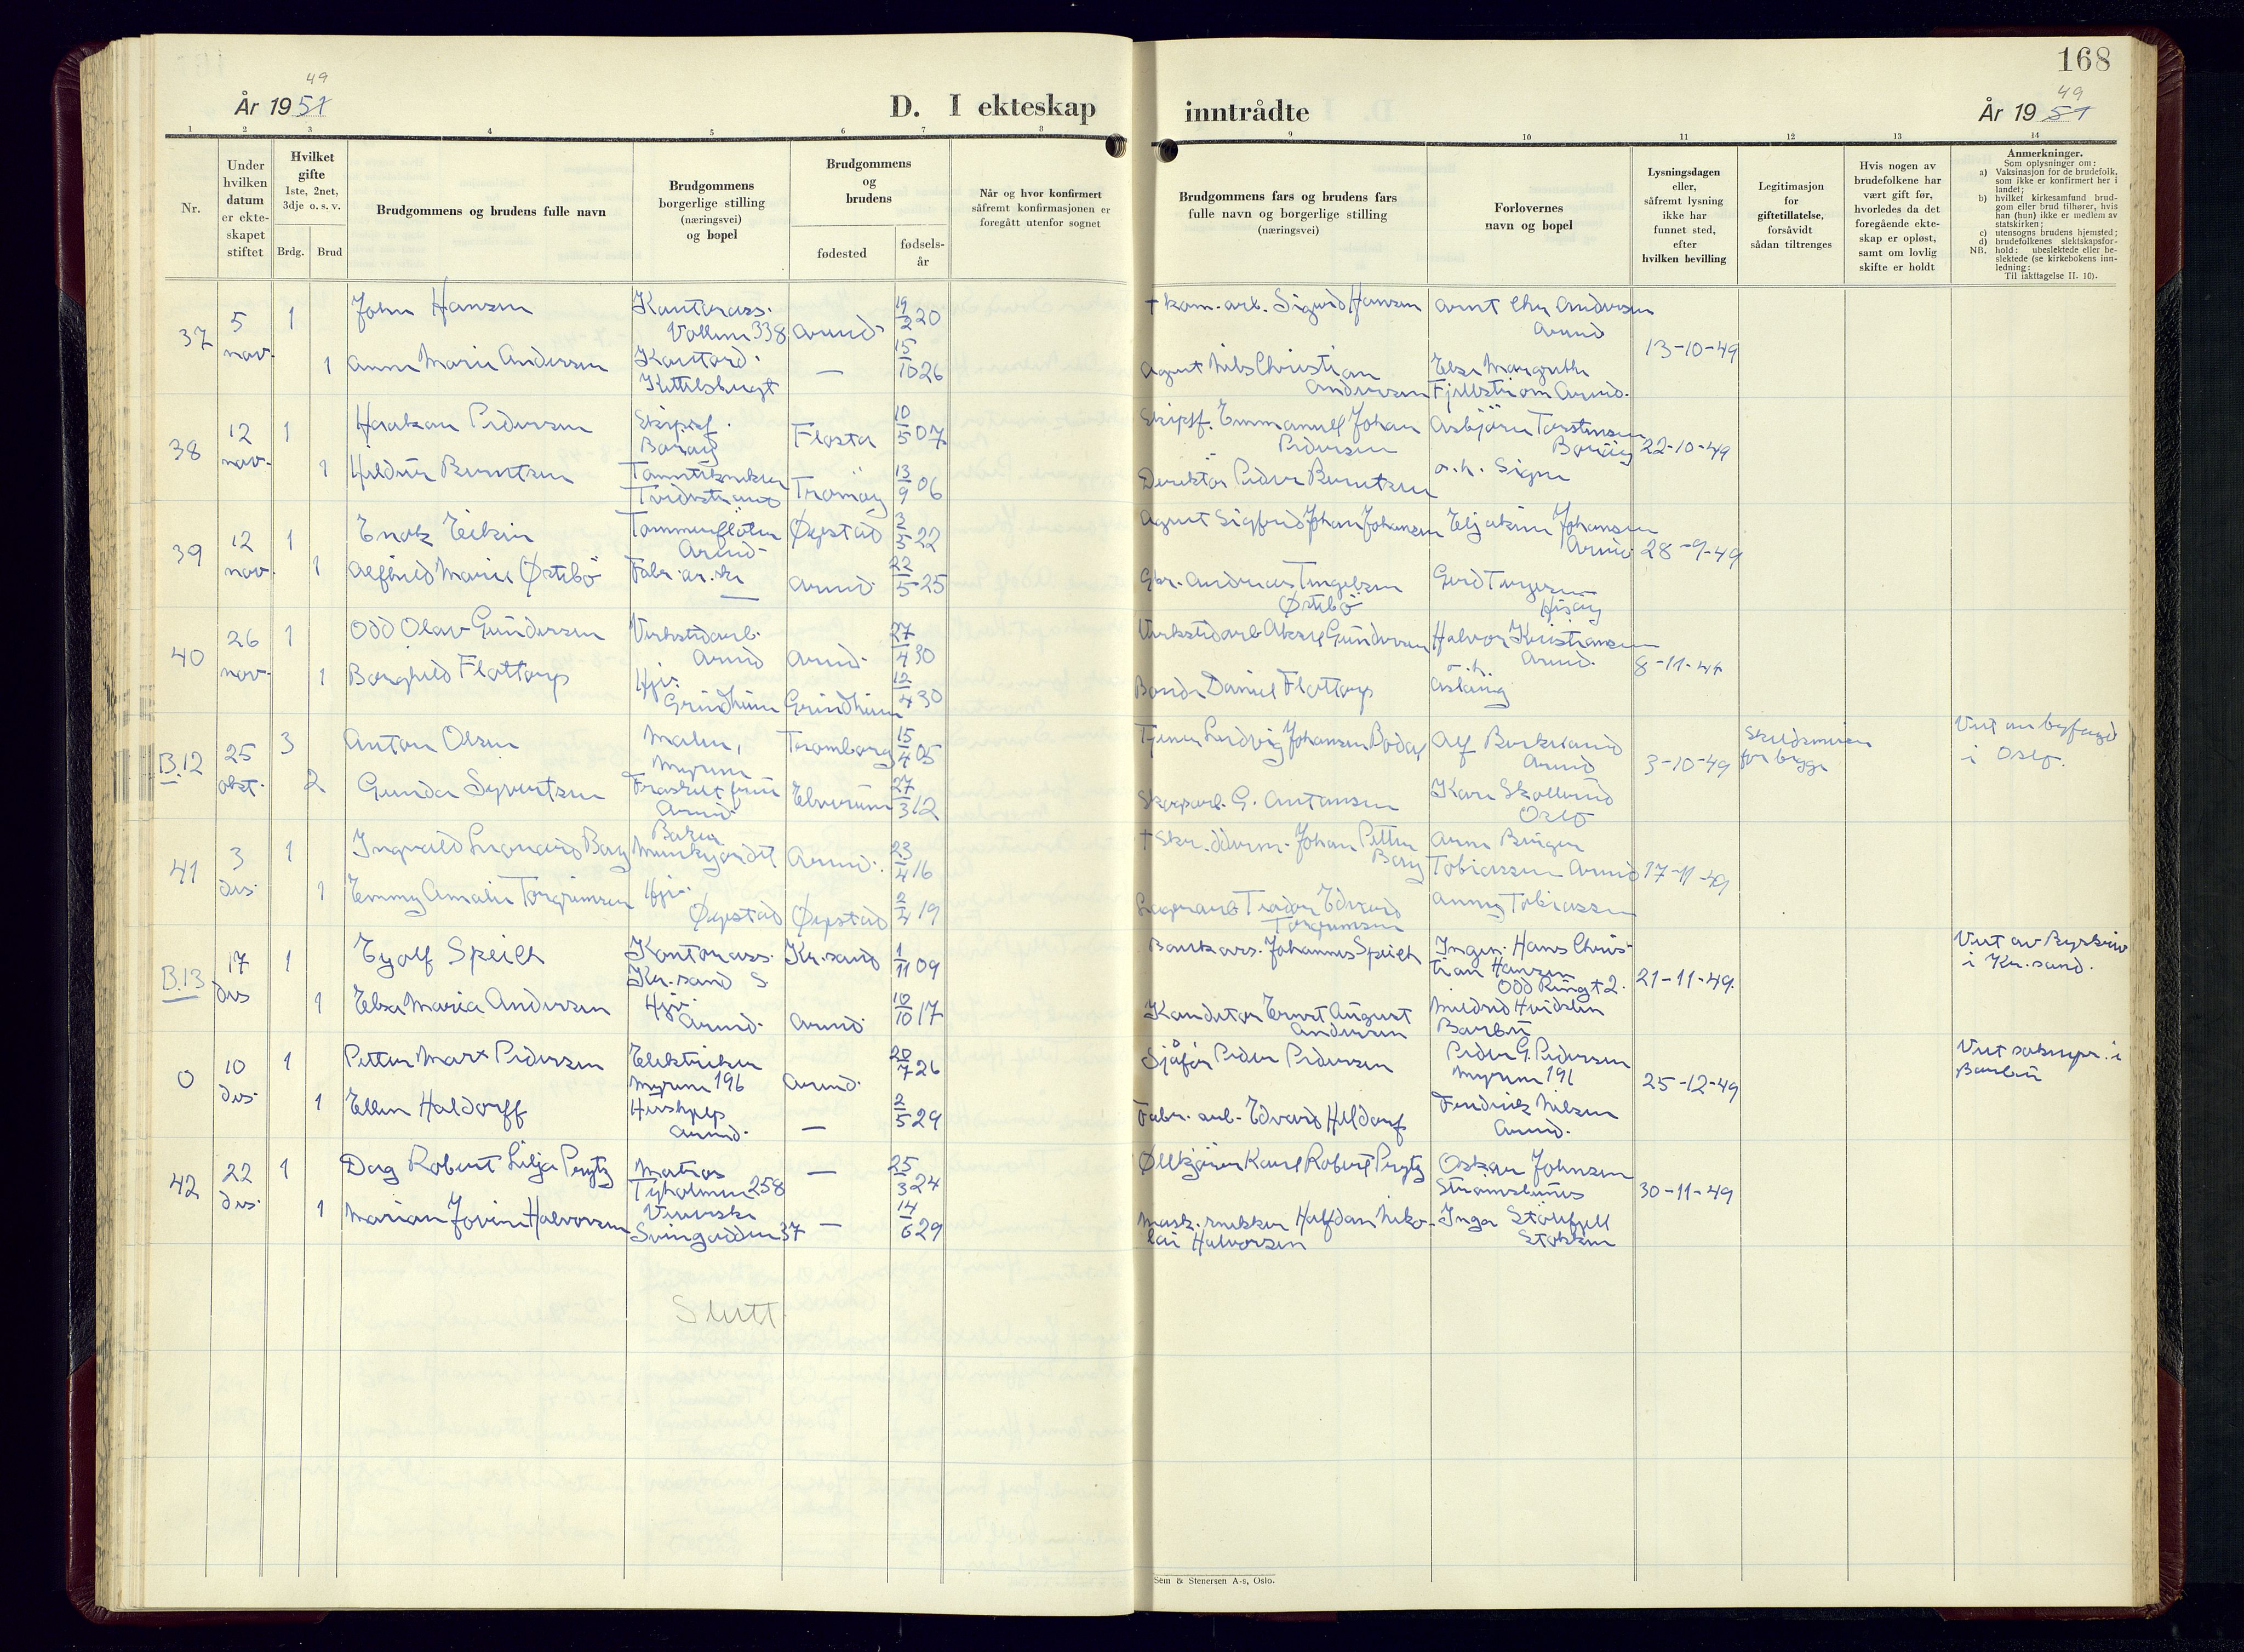 49
År 1951
D. I ekteskap
inntrådte
168
49
År 1951
1 2 3 4 5 6 7 8 9 10 11 12 13 14
Nr.
Under hvilken datum er ekte-skapet stiftet
Hvilket gifte 1ste, 2net, 3dje o. s. v.
Brdg. Brud
Brudgommens og brudens fulle navn
Brudgommens borgerlige stilling (næringsvei) og bopel
Brudgommens og brudens
fødested
fødsels-år
Når og hvor konfirmert såfremt konfirmasjonen er foregått utenfor sognet
Brudgommens fars og brudens fars fulle navn og borgerlige stilling (næringsvei)
Forlovernes navn og bopel
Lysningsdagen eller, såfremt lysning ikke har funnet sted, efter hvilken bevilling
Legitimasjon for giftetillatelse, forsåvidt sådan tiltrenges
Hvis nogen av brudefolkene har vært gift før, hvorledes da det foregående ekte-skap er opløst, samt om lovlig skifte er holdt
Anmerkninger.
Som oplysninger om:
a) Vaksinasjon for de brudefolk, som ikke er konfirmert her i landet;
b) hvilket kirkesamfund brud-gom eller brud tilhører, hvis han (hun) ikke er medlem av statskirken;
c) utensogns brudens hjemsted;
d) brudefolkenes slektskapsfor-hold: ubeslektede eller be-slektede (se kirkebokens inn-ledning:
NB. Til iakttagelse II. 10).
37 5 nov. 1 John Hansen Kontorass. Vollene 338 Arend. 19/2 20 † kom. arb. Sigurd Hansen Arnt Chr Andersen Arend 13-10-49
1 Anne Marie Andersen Kontord. Kittelsbugt — 15/10 26 Agent Nils Christian Andersen Else Margrethe Fjellstrøm Arend.
38 12 nov. 1 Haakon Pedersen Skipsf. Borøy Flosta 10/5 07 Skipsf. Emmanuel Johan Pedersen Asbjørn Torstensen Borøy 22-10-49
1 Hildur Berntsen Tanntekniker Tvedestrand Tromøy 13/9 06 Direktør Peder Berntsen o.h. Signe
39 12 nov. 1 Enok Eikin Tømmerfløter Arend. Øyestad 3/5 22 Agent Sigfrid Johan Johansen Eljakim Johansen Arend. 28-9-49
1 Alfhild Marie Østebø Fabr.ar.ske — Arend. 22/5 25 Gbr. Andreas Tengelsen Østebø Gerd Torgersen Hisøy
40 26 nov. 1 Odd Olav Gundersen Verkstedarb. Arend Arend. 27/4 30 Verkstedarb Aksel Gundersen Halvor Kristiansen Arend. 8-11-49
1 Borghild Flottorp Hjv. Grindheim Grindheim 12/4 30 Bonde Daniel Flottorp o.h. Aslaug
B.12 25 okt. 3 Anton Olsen Maler, Myrene Tromborg 15/4 05 Tjener Ludvig Johansen Alf Birkeland Arend 3-10-49 Skilsmisse for begge Viet av byfogd i Oslo.
2 Gunda Syvertsen Fraskilt frue Arend. Elverum 27/3 12 Skogsarb. G. Antonsen Kari Skollerud Oslo
41 3 des. 1 Ingvald Leonard Berg Baker Munkejordet Arend. 23/4 16 † Skredderm. Johan Petter Berg Arne Birger Tobiassen Arend 17-11-49
1 Emmy Amalie Torgrimsen Hjv. Øyestad Øyestad 2/4 19 Lagerarb Teodor Edvard Torgrimsen Anny Tobiassen
B.13 17 des 1 Eyolf Speilh Kontorass. Kr.sand S Kr.sand 1/11 09 Bankass. Johannes Speilh Ingen. Hans Christian Hansen Odd Ringt 2. 21-11-49. Viet av Byskriv i Kr.sand.
1 Else Maria Andersen Hjv. Arend. Arend. 10/10 17 Konditor Ernst August Andersen Mildrid Hvidsten Barbu
0 10 des. 1 Petter Marx Pedersen Elektriker Myrene 196 Arend. 20/7 26 Sjåfør Peder Pedersen Peder G. Pedersen Myrene 191 25-12-49 Viet soknepr. i Barbu
1 Ellen Haldorff Hushjelp Arend. — 2/5 29 Fabr. arb. Edvard Haldorf Fredrik Nelsen Arend.
42 22 des. 1 Dag Robert Lilja Prytz Matros Tyholmen 258 — 25/3 24 Øllkjører Karl Robert Prytz Oskar Johnsen Strømsbunes 30-11-49
1 Marian Jovine Halvorsen Veverske Svingodden 37 — 14/6 29 Mask. snekker Halfdan Niko-lai Halvorsen Inga Stølefjell Stokken
Slutt.
Sem & Stenersen A-s, Oslo.